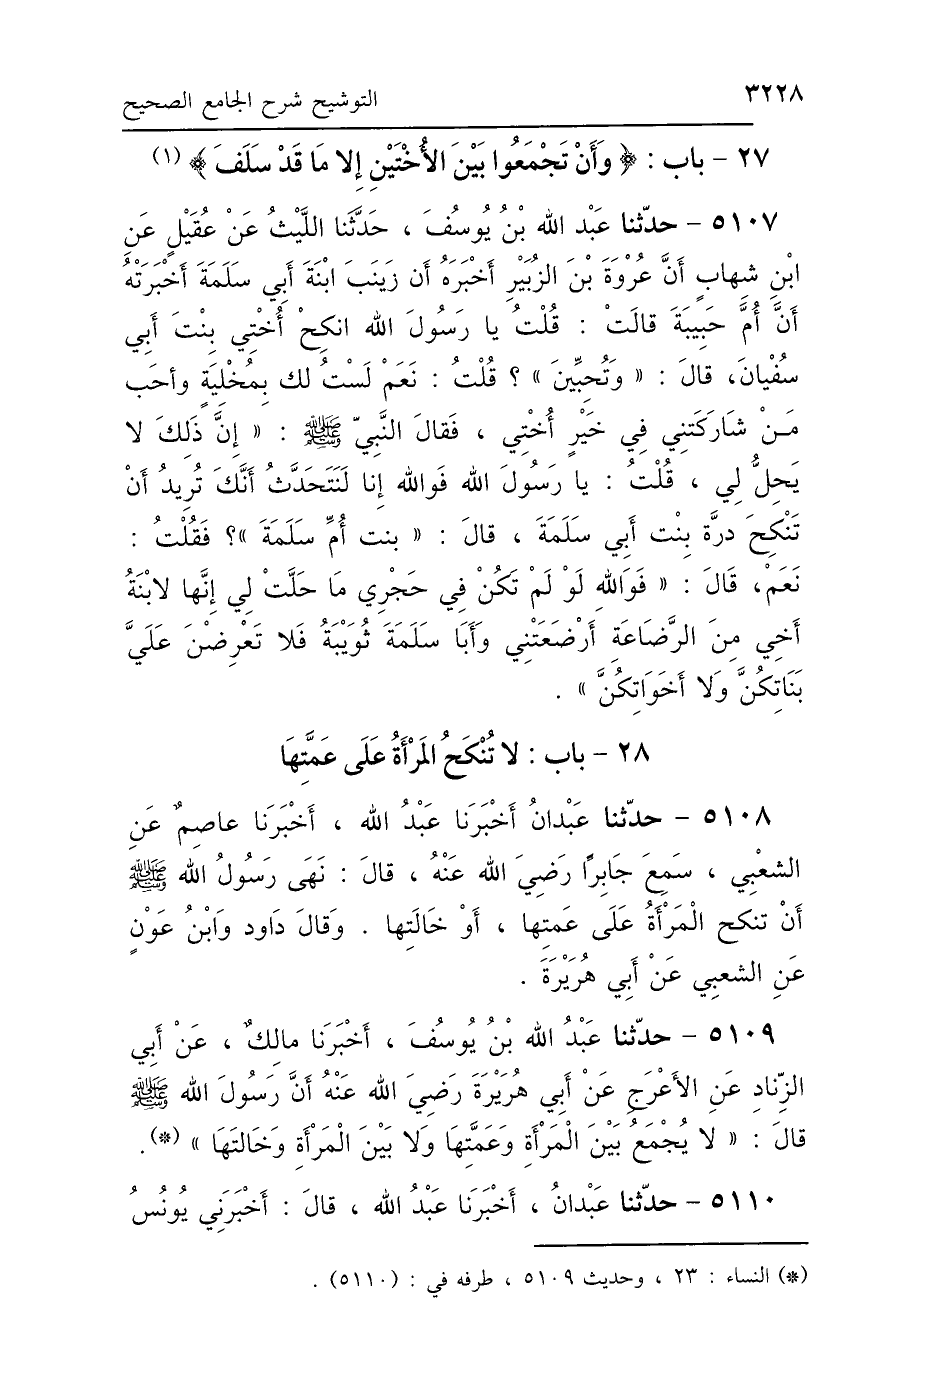 ٣٢٢٨
التوشيح شرح الجامع الصحيح
٢٧ - باب : ﴿ وَأَنْ تَجْمَعُوا بَيْنَ الأُخْتَيْنِ إِلا مَا قَدْ سَلَفَ ﴾ (١)
٥١٠٧ - حدّثنا عَبْد الله بْنُ يُوسُفَ ، حَدَّثَنا اللَّيْثُ عَنْ عُقَيْلٍ عَنِ
ابْنِ شهابٍ أَنَّ عُرْوَةَ بْنَ الزُبَيْرِ أَخْبَرَهُ أن زَينَبَ ابْنَةَ أبي سَلَمَةَ أَخْبَرَتْهُ
أَنَّ أُمَّ حَبِيبَةَ قالَتْ : قُلْتُ يا رَسُولَ الله انكِحْ أُخْتِي بِنْتَ أبي
سُفْيانَ، قالَ : « وَتُحِبِّينَ » ؟ قُلْتُ : نَعَمْ لَسْتُ لك بِمُخْلِيَةٍ وأحَب
مَـنْ شَارَكَتنِي فِي خَيْرٍ أُخْتِي ، فَقالَ النَّبِيّ ﷺ : « إنَّ ذَلِكَ لا
يَحِلُّ لِي ، قُلْتُ : يا رَسُولَ الله فَوالله إنا لَنَتَحَدَّثُ أَنَّكَ تُرِيدُ أَنْ
تَنْكِحَ درَّة بِنْت أبي سَلَمَةَ ، قالَ : « بنت أُمِّ سَلَمَةَ »؟ فَقُلْتُ :
نَعَمْ، قَالَ : « فَوَاللهِ لَوْ لَمْ تَكُنْ فِي حَجْرِي مَا حَلَّتْ لِي إنَّها لابْنَةُ
أَخِي مِنَ الرَّضَاعَةِ أَرْضَعَتْنِي وأَبَا سَلَمَةَ ثُوَيْبَةُ فَلا تَعْرِضْنَ عَلَيَّ
بَنَاتِكُنَّ وَلا أَخَوَاتِكُنَّ » .
٢٨ - باب : لا تُنْكَحُ المَرْأَةُ عَلَى عَمَّتِهَا
٥١٠٨ - حدّثنا عَبْدانُ أَخْبَرَنَا عَبْدُ الله ، أَخْبَرَنَا عاصِمٌ عَنِ
الشعْبِي ، سَمِعَ جَابِراً رَضِيَ الله عَنْهُ ، قالَ : نَهَى رَسُولُ الله ﷺ
أَنْ تنكح الْمَرْأَةُ عَلَى عَمتِها ، أَوْ خالَتِها . وَقالَ دَاود وَابْنُ عَوْنٍ
عَنِ الشعبِي عَنْ أَبِي هُرَيْرَةَ .
٥١٠٩ - حدّثنا عَبْدُ الله بْنُ يُوسُفَ ، أَخْبَرَنَا مالكٌ ، عَنْ أَبِي
الزِّناد عَنِ الأَعْرَجِ عَنْ أَبِي هُرَيْرَةَ رَضِيَ الله عَنْهُ أَنَّ رَسُولَ الله ﷺ
قالَ : « لا يُجْمَعُ بَيْنَ الْمَرْأَةِ وَعَمَّتِهَا وَلا بَيْنَ الْمَرْأَةِ وَخَالَتِهَا » (*).
٥١١٠ - حدّثنا عَبْدانُ ، أَخْبَرَنَا عَبْدُ الله ، قالَ : أَخْبَرَنِي يُونُسُ
(*) النساء : ٢٣ ، وحديث ٥١٠٩ ، طرفه في : (٥١١٠) .